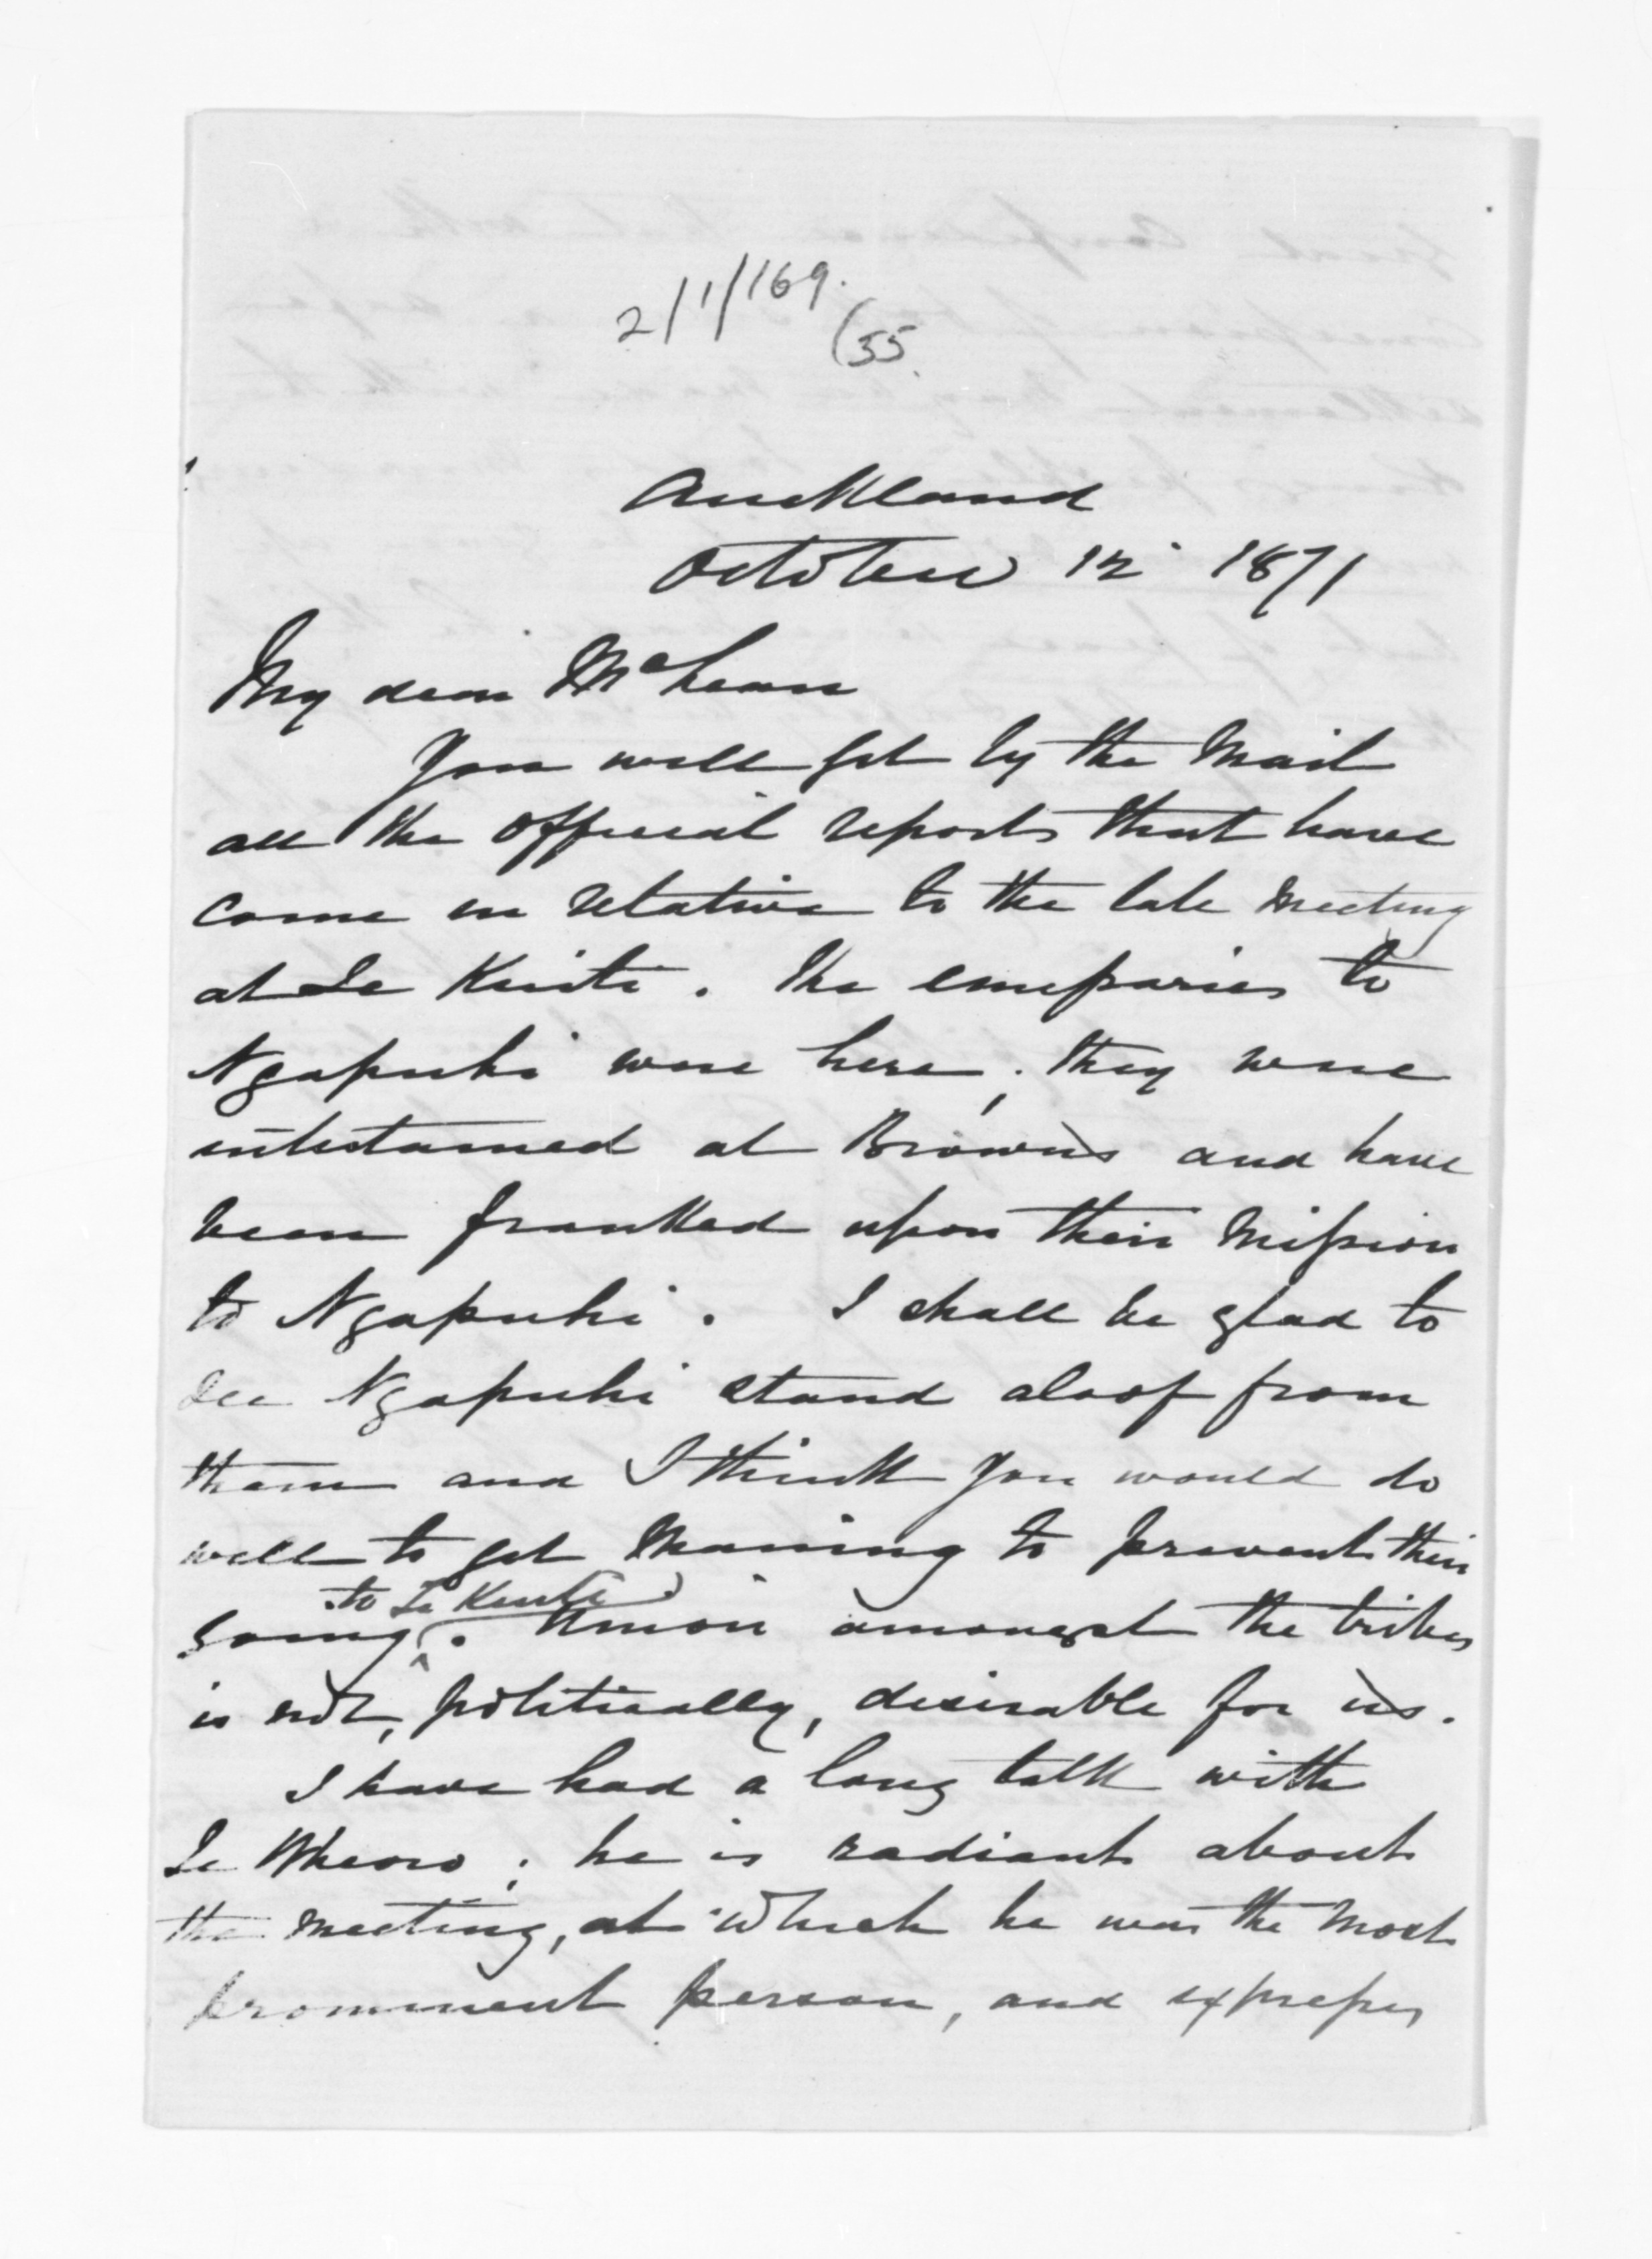 2/1/169.
(55.
Auckland
October 12 1871
My dear McLean
You will get by the Mail
all the official reports that have
come in relative to the late meeting
at Te Kuiti. The emissaries to
Ngapuhi were here; they were
entertained at Browns and have
been franked upon their Mission
to Ngapuhi. I shall be glad to
see Ngapuhi stand aloof from
them and I think you would do
well to get Maning to prevent their
going to Te Kuiti. Union amongst the tribes
is not, politically, desirable for us.
I have had a long talk with
Te Wheoro; he is radiant about
the meeting, at which he was the most
prominent person, and expresses